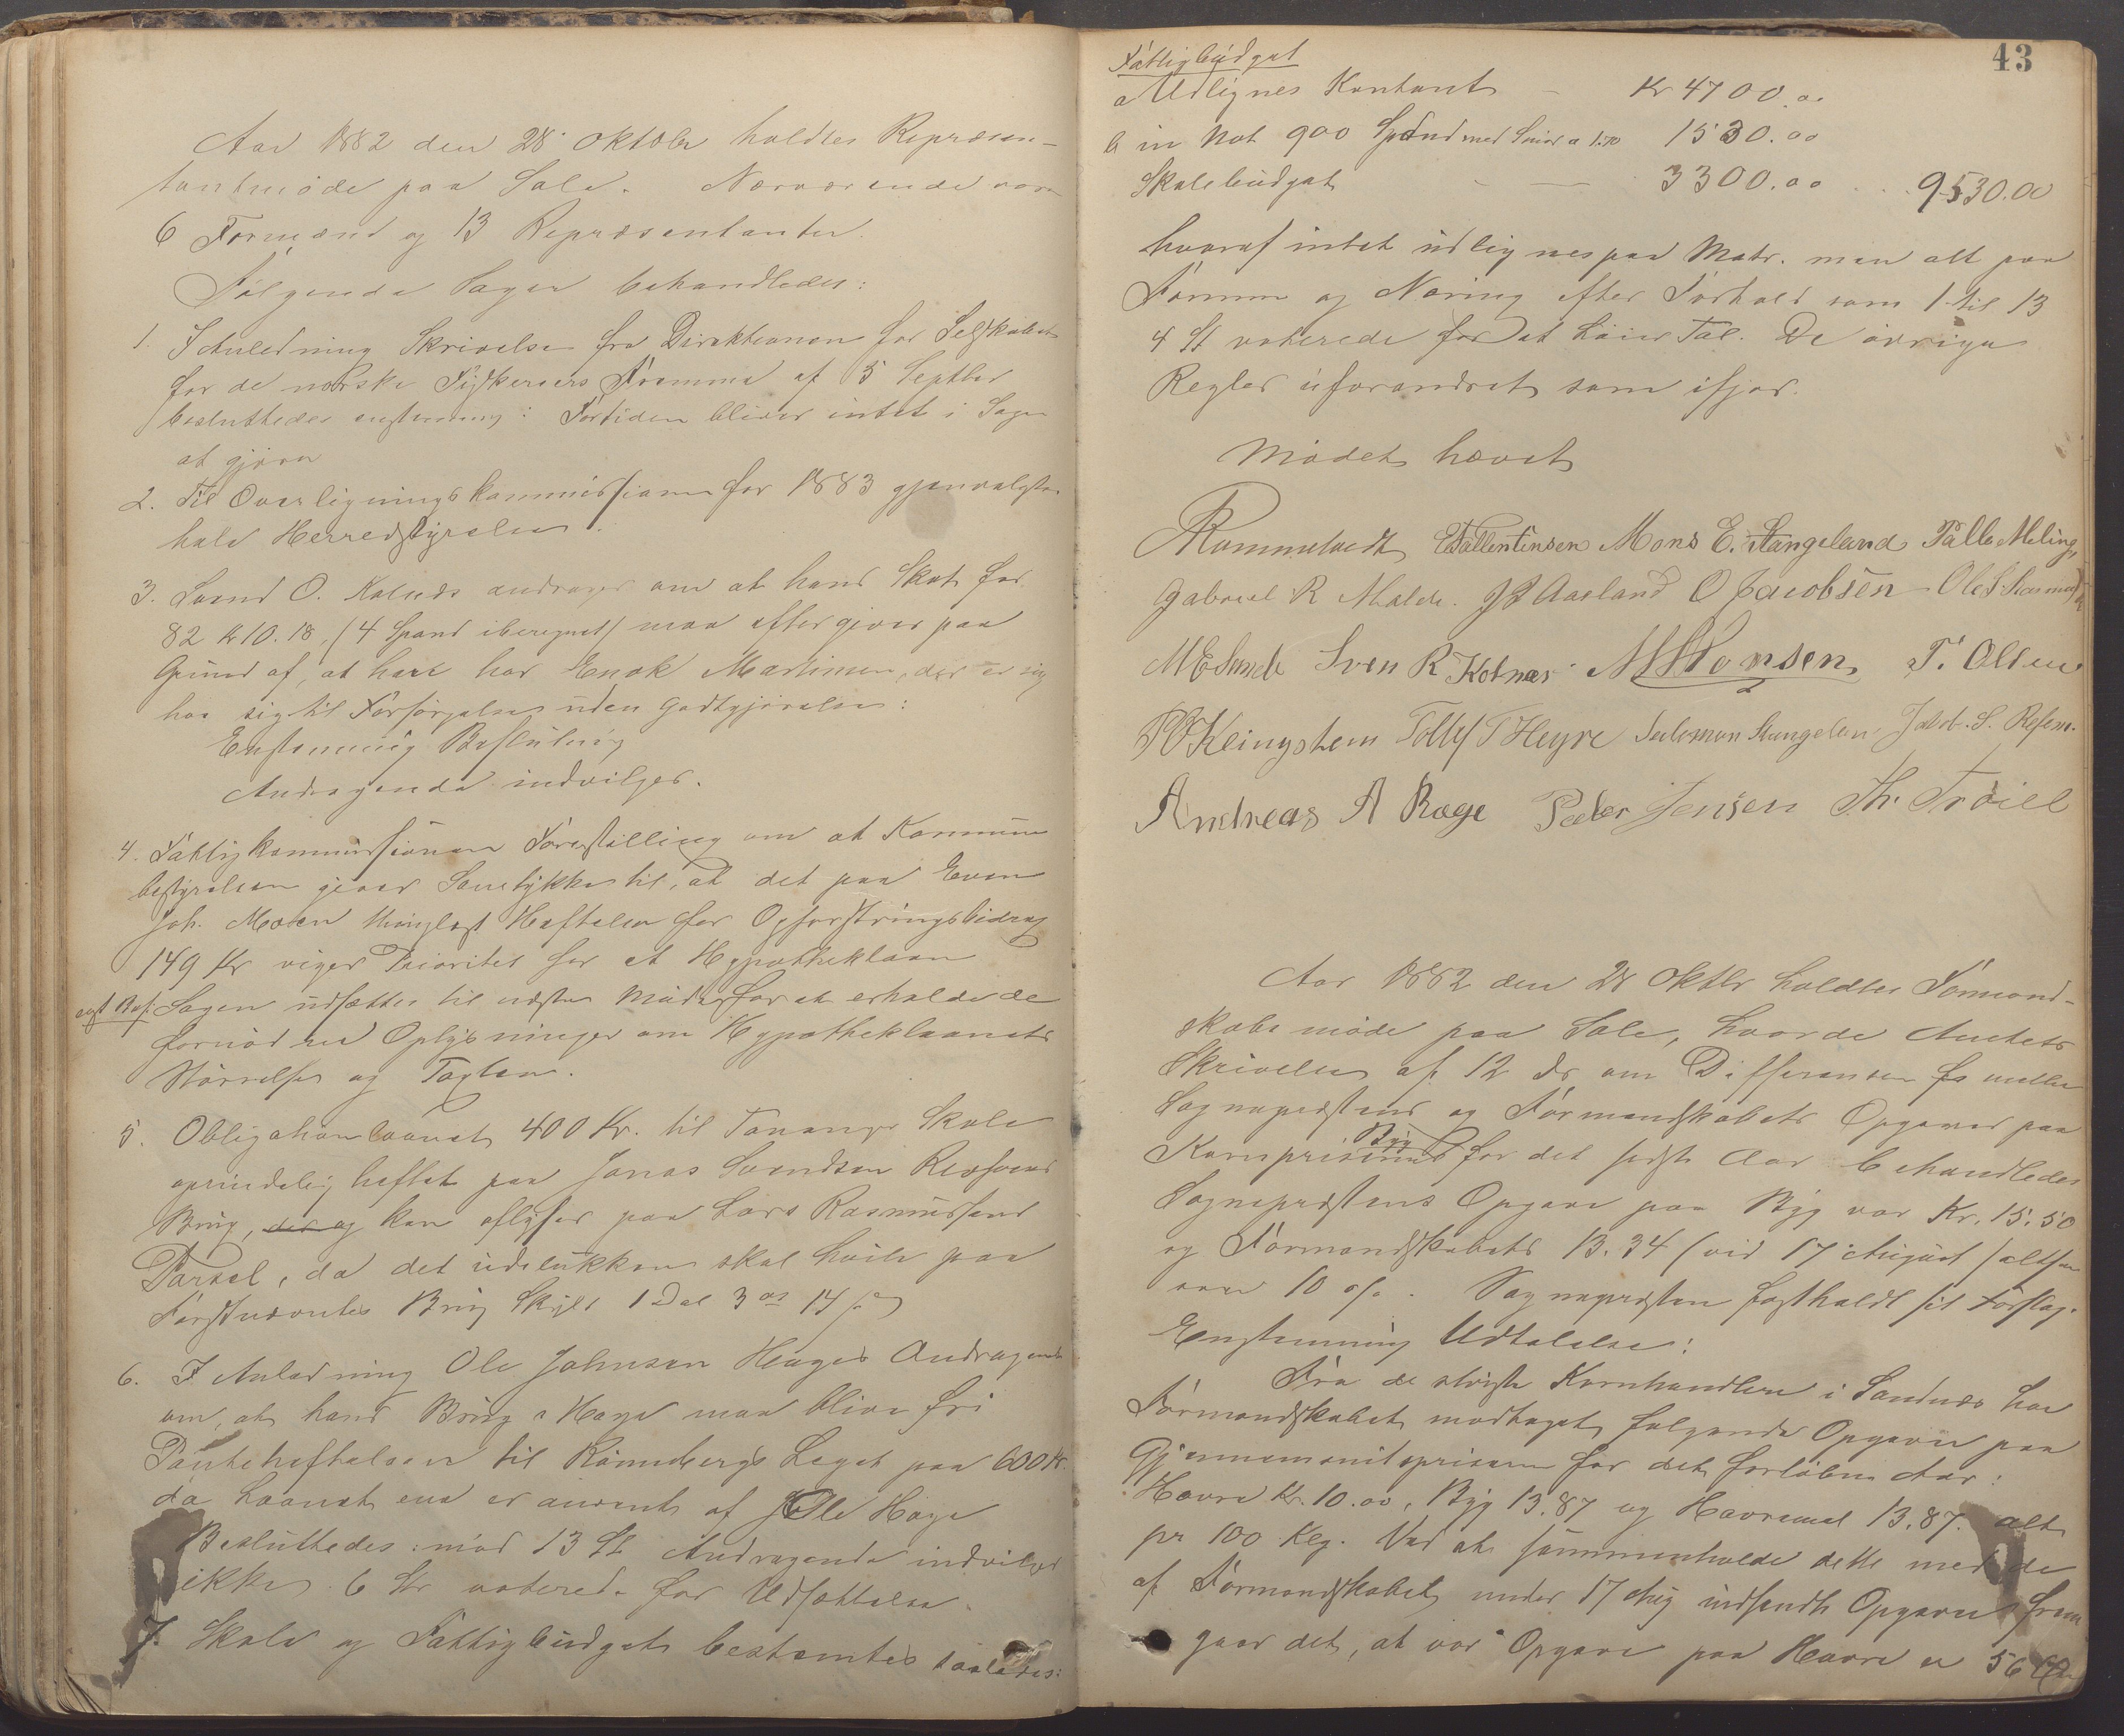 Aar 1882 den 28 Oktober holdtes Repræsen-
tantmøde paa Sole. Nærværende var
6 Formænd og 13 Repræsentanter.
Følgende Sager behandledes:
1. I Anledning Skrivelse fra Direktionen for Selskabet
for de norske Fiskeriers Fremme af 5 Septbr
besluttedes enstemmig: Fortiden bliver intet i Sagen
at gjøre
2. Til Overligningskommissionen for 1883 gjenvalgtes
hele Herredstyrelsen.
3. Svend O. Kolnæs andrager om at hans Skat for
82 Kr 10.18, (4 Spand iberegnet) maa eftergives paa
Grund af, at han har Enok Martinsen, der er syg
hos sig til Forsørgelse uden Godtgjørelse:
Enstemmig Beslutning
Andragende indvilges.
4. Fattigkommissionen Forestilling om at Kommune
bestyrelsen giver Samtykke til, at det paa Even
Joh. Moen thinglæst Heftelse for Opfostringsbidrag
149 Kr viger Prioritet for et Hypotheklaan
enst Besl: Sagen udsættes til næste Møde for at erholde de
fornødne Oplysninger om Hypotheklaanets
Størrelse og Taxten.
5. Obligationlaanet 400 Kr. til Tananger Skole
oprindelig heftet paa Jonas Svendsen Risnæs
Brug, der og kan aflyses paa Lars Rasmussens
Parsel, da det udelukkende skal hvile paa
Førstnævntes Brug Skyld 1 Dal 3 ort 14 s
6. I Anledning Ole Johnsen Hages Andragende
om, at hans Brug i Haga maa blive fri
Panteheftelsen til Rønnebergs Legat paa 600 Kr.
da Laanet end er anvendt af Ole Hage
Besluttedes: mod 13 St Andragende indvilges
ikke. 6 St voterede for Udsættelse.
7. Skole og Fattigbudget bestemtes saaledes:
43
Fattigbudget
a Udlignes Kontant – Kr 4700.00
b in Nat 900 Spand med Smør a 1.70 1530.00
Skolebudget – — 3300.00 .. 9530.00
hvoraf intet udlignes paa Matr. men alt paa
Formue og Næring efter Forhold som 1 til 13
4 St voterede for et høier Tal. De øvrige
Regler uforandret som ifjor.
Mødet hævet
Rommetvedt E Tallentinsen Mons E. Stangeland Palle Meling,
Gabriel R Malde. J P Aasland O Jacobsen Ole S.
M E Sunde Sven R Kolnæs Monsen T. Olsen
Kleingstem Tollef T Heyre Salomon Stangelan Jakob. S. Refsnæ.
Andreas A Røge Peder Jensen Th. Trøiel
Aar 1882 den 28 Oktbr holdtes Formand-
skabsmøde paa Sole, hvor de Amtets
Skrivelse af 12 ds om Differensen fs mellem
Sognepræstens og Formandskabets Opgaver paa
Byg
Kornpriserne for det sidste Aar behandledes
Sognepræstens Opgave paa Byg var Kr. 15.50
og Formandskabets 13.34 (vid 17 August) altsaa
over 10 o/o. Sognepræsten fastholdt sit Forslag.
Enstemmig Udtalelse:
Fra de største Kornhandlere i Sandnæs har
Formandskabet modtaget følgende Opgave paa
Gjennemsnitspriserne for det forløbne Aar:
Havre Kr. 10.00, Byg 13.87 og Havremel 13.87. alt
pr 100 Klg. Ved at sammenholde dette med de
af Formandskabet under 17 Aug indsendte Opgaver frem
gaar det, at vor Opgave paa Havre er 56 Øre